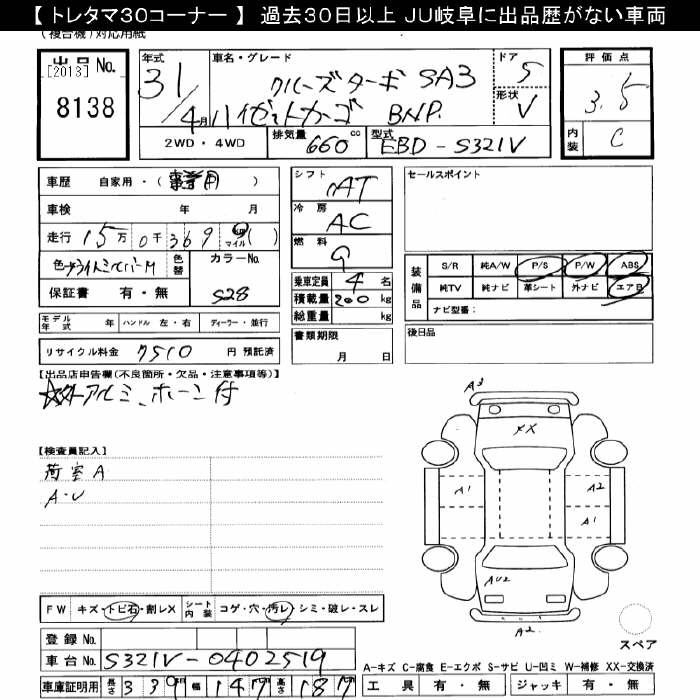 【 トレタマ30コーナー 】 過去30日以上 JU岐阜に出品歴がない車両
(複合機)対応用紙
出品 No.
[2013]
8138
年式 車名・グレード ドア 評価点
31/4月 クルーズターボ SA3 5
ハイゼットカーゴ BNP. 形状 V
3.5
2WD・4WD 排気量 660 cc 型式 EBD-S321V
内装 C
車歴 自家用・( )
車検 年 月
走行 15万 0千 369 ㎞ マイル ( )
色 M 色替 カラーNo.
S28
保証書 有・無
シフト AT
冷房 AC
燃料 G
乗車定員 4 名
積載量 200 kg
総重量 kg
書類期限
月 日
セールスポイント
装備品 S/R 純A/W P/S P/W ABS
純TV 純ナビ 革シート 外ナビ エアB
ナビ型番:
後日品
モデル年式 年 ハンドル 左・右 ディーラー・並行
リサイクル料金 7510 円 預託済
【出品店申告欄(不良箇所・欠品・注意事項等)】
アルミ、ホーン付
【検査員記入】
荷室A
A・U
A3
XX
A1 A2
A1
AU2
A2
スペア
FW キズ・トビ石・割レX シート内装 コゲ・穴・汚レ・シミ・破レ・スレ
登録 No.
車台 No. S321V-0402519
車庫証明用 長さ 330 幅 147 高さ 187
A−キズ C−腐食 E−エクボ S−サビ U−凹ミ W−補修 XX−交換済
工具 有・無 ジャッキ 有・無